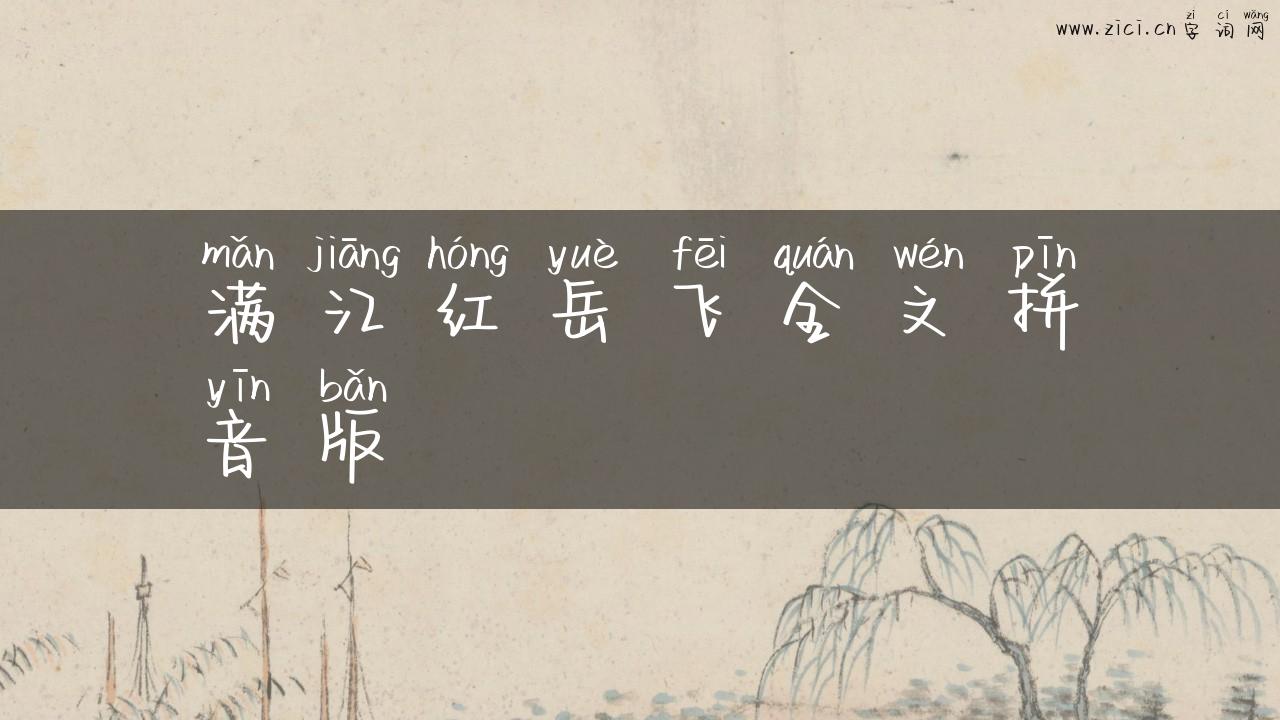 zì cí wǎng
www.zici.cn 字词网
mǎn jiāng hóng yuè fēi quán wén pīn
满江红岳飞全文拼
yīn bǎn
音版